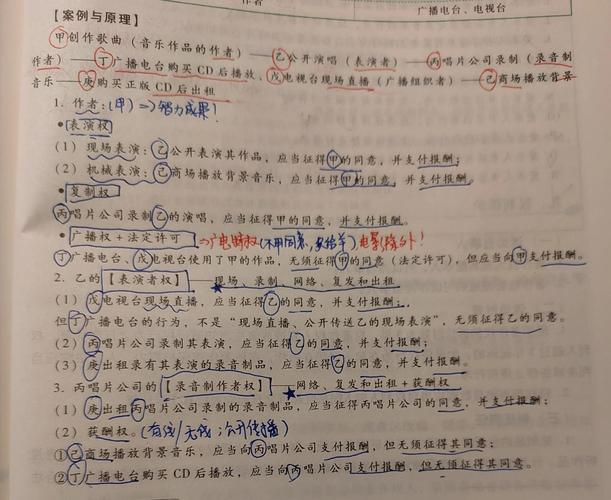 作者
广播电台、电视台
【案例与原理】
甲创作歌曲（音乐作品的作者）——乙公开演唱（表演者）——丙唱片公司录制（录音制
作者）——丁广播电台购买 CD 后播放、戊电视台现场直播（广播组织者）——己商场播放背景
音乐——庚购买正版 CD 后出租
1. 作者:(甲) => 智力成果!
• 表演权
（1） 现场表演：乙公开表演其作品，应当征得甲的同意，并支付报酬；
（2） 机械表演：己商场播放背景音乐，应当征得甲的同意，并支付报酬。
• 复制权
丙唱片公司录制乙的演唱，应当征得甲的同意，并支付报酬。
• 广播权 + 法定许可 => 广电特权 (不用同意, 要给羊) 电影除外!
丁广播电台、戊电视台使用了甲的作品，无须征得甲的同意（法定许可），但应当向甲支付报酬。
2. 乙的【表演者权】——现场、录制、网络、复发和出租
（1） 戊电视台现场直播，应当征得乙的同意，并支付报酬；
但丁广播电台的行为，不是“现场直播、公开传送乙的现场表演”，无须征得乙的同意。
（2） 丙唱片公司录制其表演，应当征得乙的同意，并支付报酬；
（3） 庚出租录有其表演的录音制品，应当征得乙的同意，并支付报酬。
3. 丙唱片公司的【录音制作者权】——网络、复发和出租 + 获酬权
（1） 庚出租丙唱片公司录制的录音制品，应当征得丙唱片公司的同意，并支付报酬；
（2） 获酬权。(有线/无线 公开传播)
①己商场播放背景音乐，应当向丙唱片公司支付报酬，但无须征得其同意；
②丁广播电台购买 CD 后播放，应当向丙唱片公司支付报酬，但无须征得其同意。